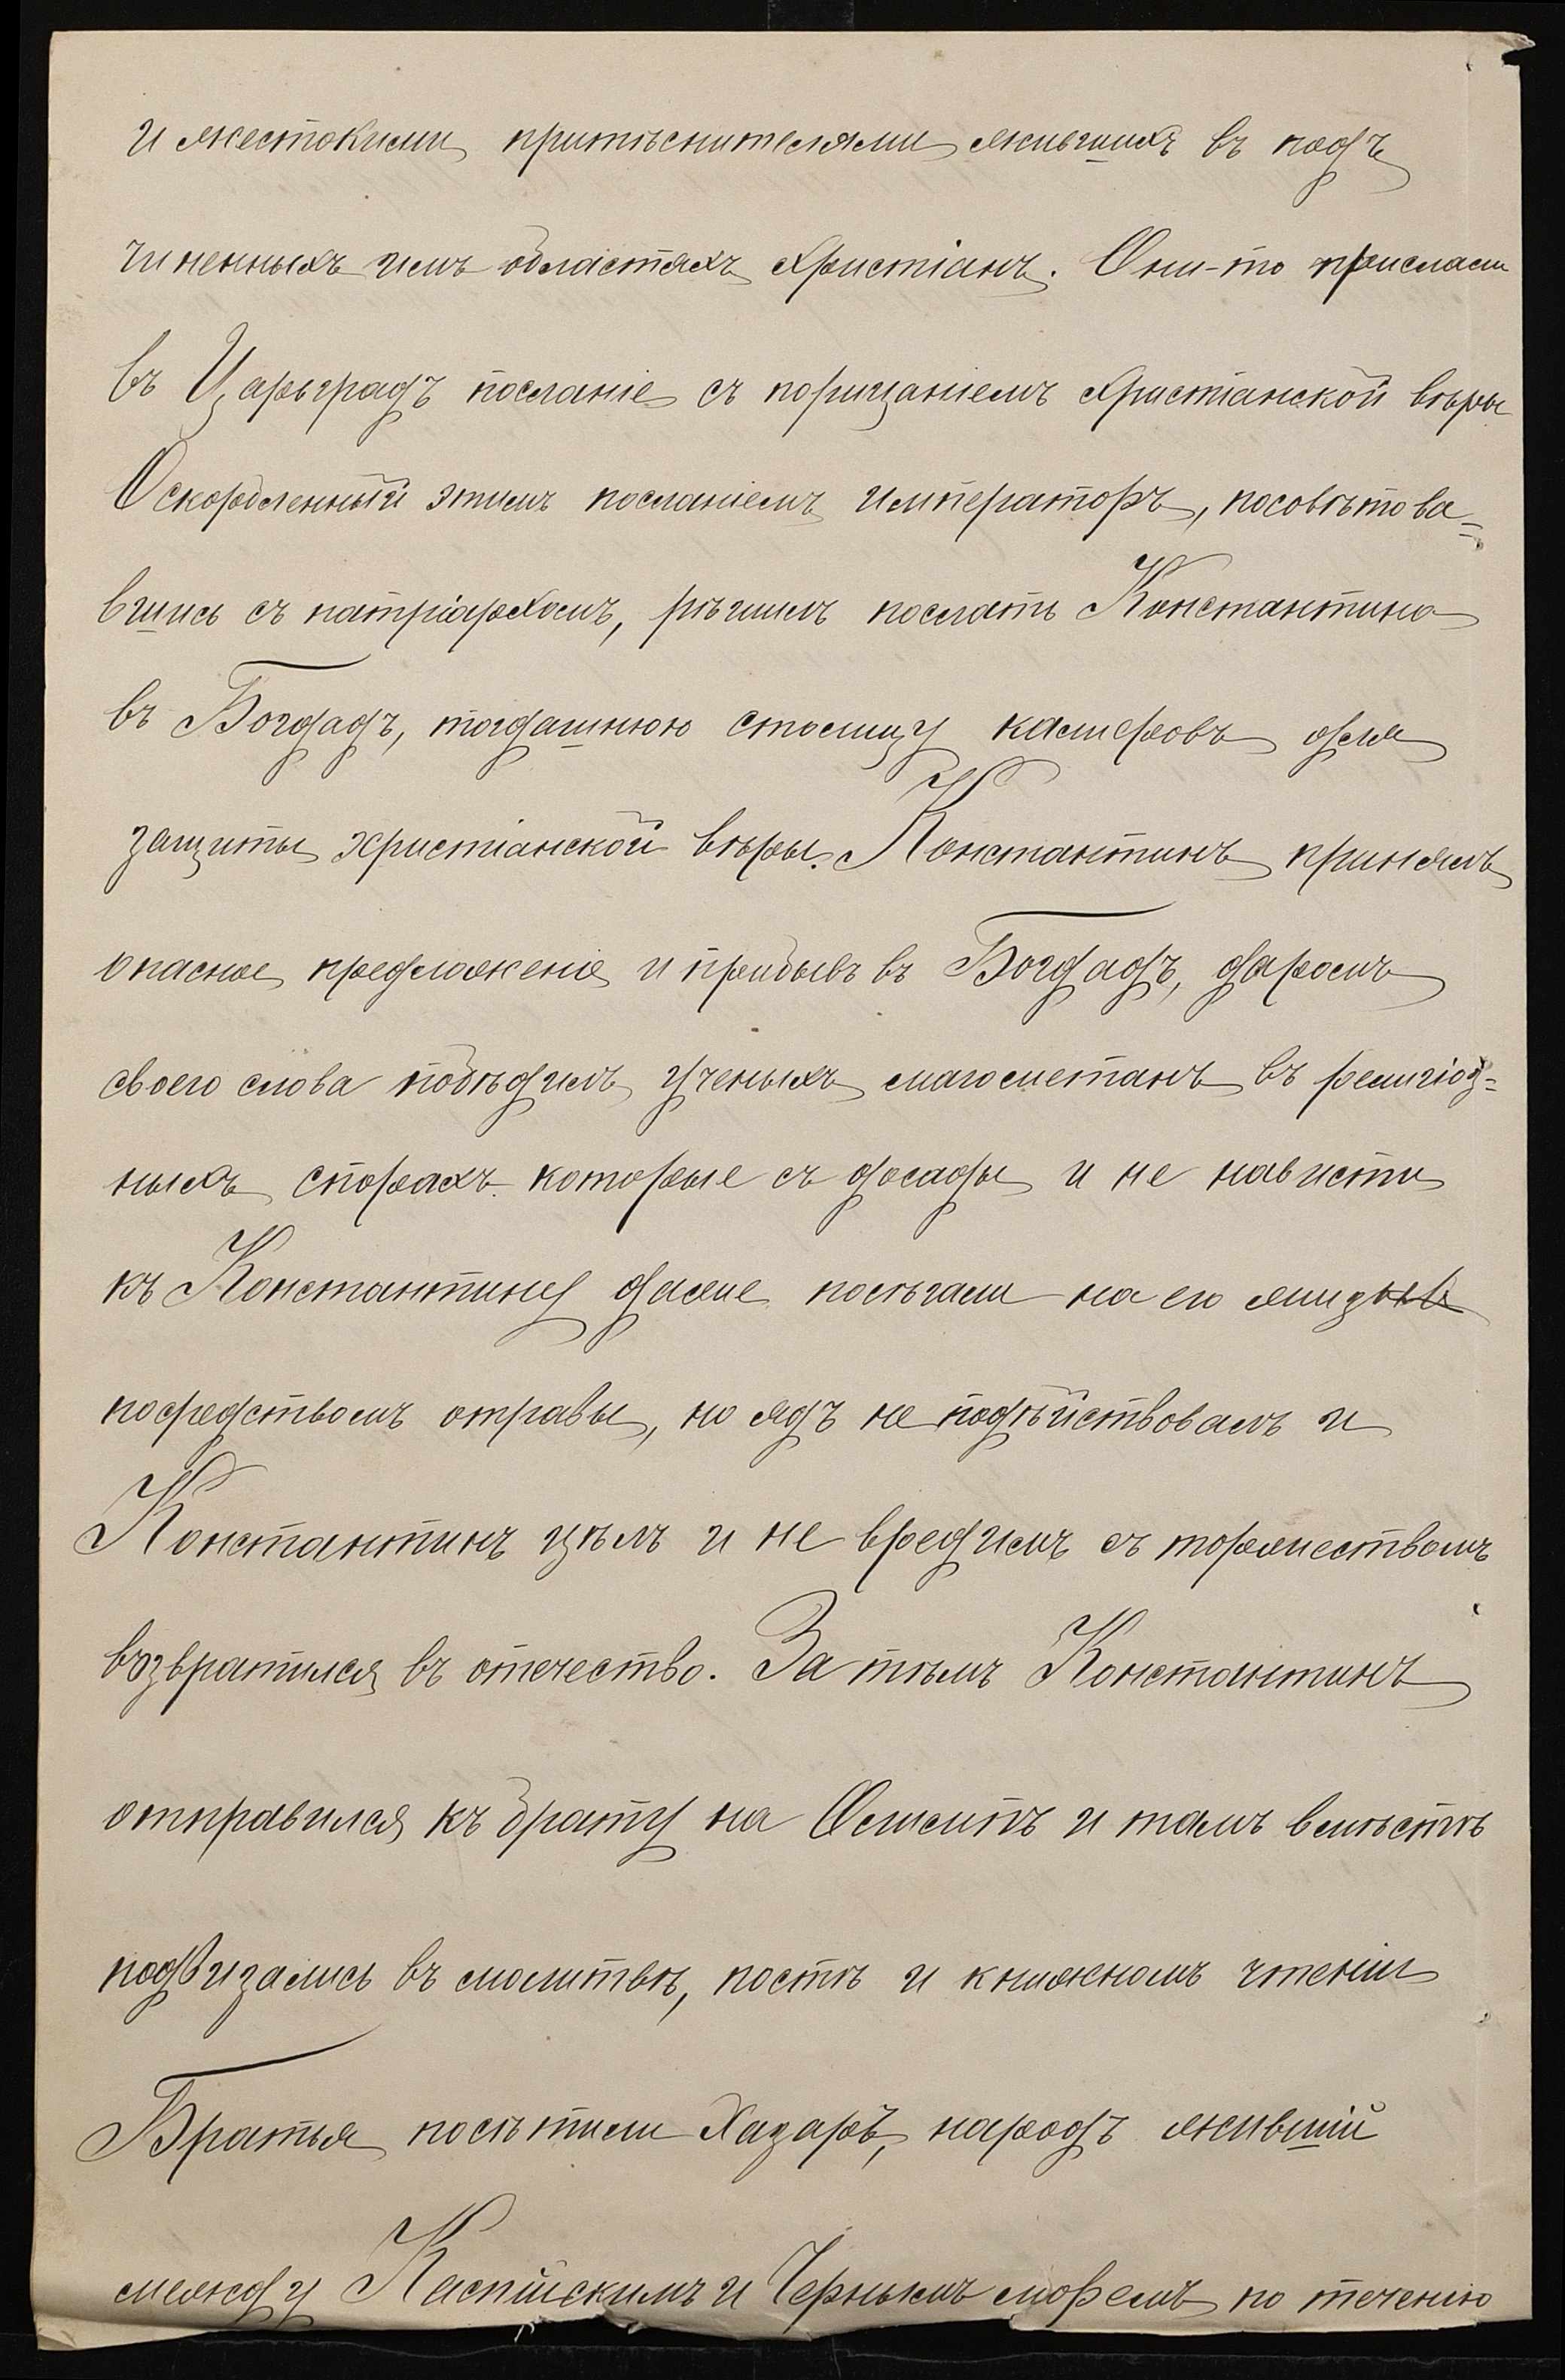 и жестокими притѣснителями жившихъ въ подъ
чиненныхъ имъ областяхъ христіанъ. Они-то прислали
въ Царьградъ посланіе съ порицаніемъ христіанской вѣры
Оскорбленный этимъ посланіемъ императоръ, посовѣтова=
вшись съ патріархомъ, рѣшилъ послать Константина
въ Богдадъ, тогдашнюю столицу калифовъ для
защиты христіанской вѣры. Константинъ принялъ
опасное предложеніе и прибывъ въ Богдадъ, даромъ
своего слова побѣдилъ ученыхъ магометанъ въ религіоз=
ныхъ спорахъ которые съ досады и не нависти
къ Константину даже посягали на его жизнь
посредствомъ отравы, но ядъ не подѣйствовалъ и
Константинъ цѣлъ и не вредимъ съ торжествомъ
возвратился въ отечество. За тѣмъ Константинъ
отправился къ брату на Олимпъ и тамъ вмѣстѣ
подвизались въ молитвѣ, постѣ и книжномъ чтеніи
Братья посѣтили Хазаръ, народъ жившій
между Каспійскимъ и Чернымъ моремъ по теченію